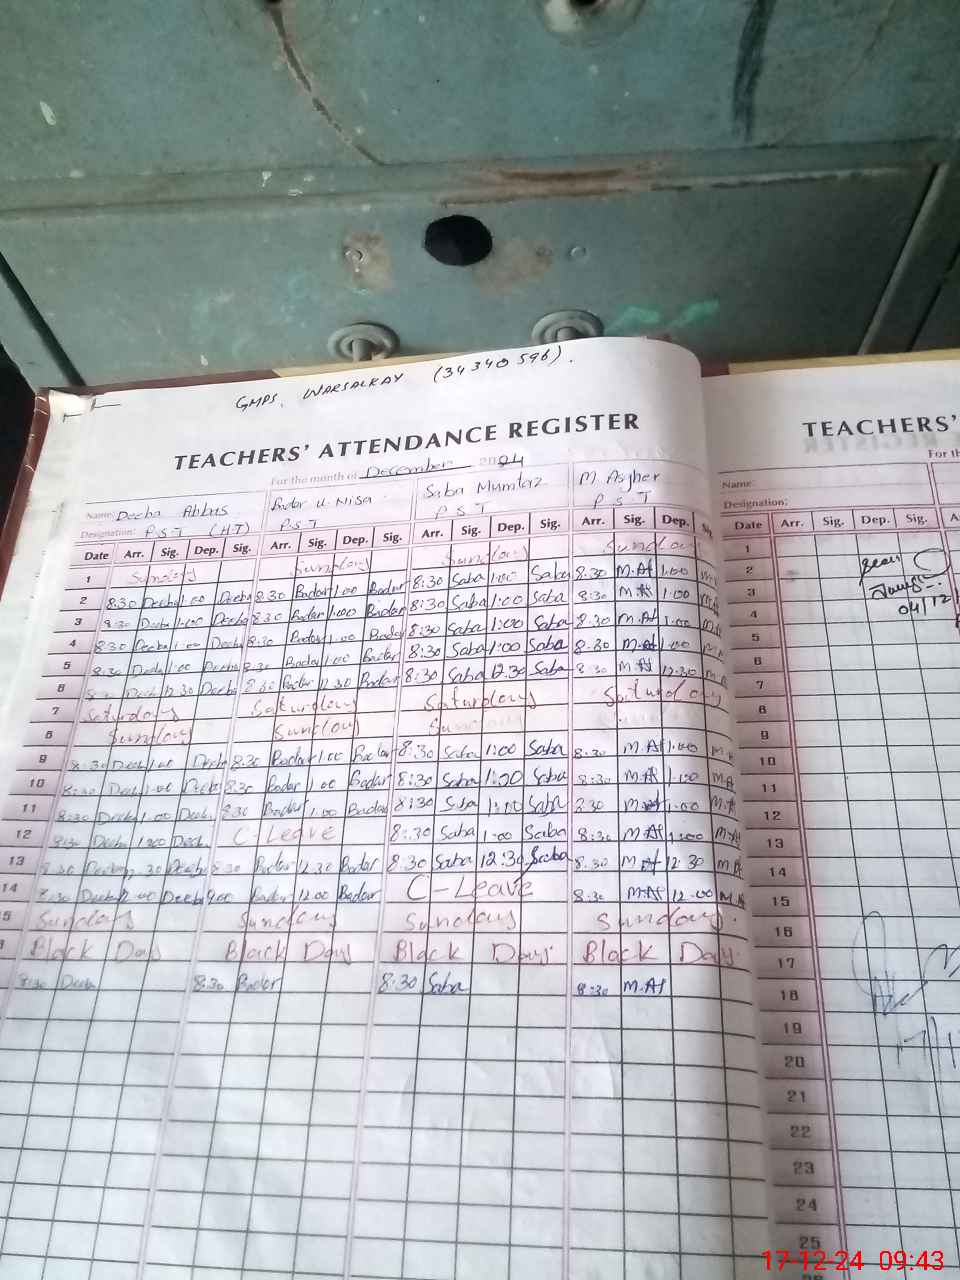 GMPS. WARSALKAY (34340596).
TEACHERS' ATTENDANCE REGISTER
For the month of December 2024
Name: Deeba Abbas Badar U. Nisa Saba Mumtaz M Asgher
Designation: P.S.T (HT) P.S.T P.S.T P.S.T
Date Arr. Sig. Dep. Sig. Arr. Sig. Dep. Sig. Arr. Sig. Dep. Sig. Arr. Sig. Dep.
1 Sunday Sunday Sunday Sunday
2 8:30 Deeba 1:00 Deeba 8:30 Badar 1:00 Badar 8:30 Saba 1:00 Saba 8:30 M.As 1:00
3 8:30 Deeba 1:00 Deeba 8:30 Badar 1:00 Badar 8:30 Saba 1:00 Saba 8:30 1:00
4 8:30 Deeba 1:00 Deeba 8:30 Badar 1:00 Badar 8:30 Saba 1:00 Saba 8:30 M.As 1:00
5 8:30 Deeba 1:00 Deeba 8:30 Badar 1:00 Badar 8:30 Saba 1:00 Saba 8:30 1:00
6 Deeba 12:30 Deeba 8:30 Badar 12:30 Badar 8:30 Saba 12:30 Saba 8:30 12:30
7 Saturday Saturday Saturday Saturday
8 Sunday Sunday Sunday
9 8:30 Deeba 1:00 Deeba 8:30 Badar 1:00 Badar 8:30 Saba 1:00 Saba 8:30 M.As 1:00
10 8:30 Deeba 1:00 Deeba 8:30 Badar 1:00 Badar 8:30 Saba 1:00 Saba 8:30 M.As 1:00
11 8:30 Deeba 1:00 Deeba 8:30 Badar 1:00 Badar 8:30 Saba 1:00 Saba 8:30 1:00
12 8:30 Deeba 1:00 Deeba C-Leave 8:30 Saba 1:00 Saba 8:30 M.As 1:00
13 8:30 Deeba 12:30 Deeba 8:30 Badar 12:30 Badar 8:30 Saba 12:30 Saba 8:30 12:30
14 8:30 Deeba 12:00 Deeba 9:00 Badar 12:00 Badar C-Leave 8:30 M.As 12:00
Sunday Sunday Sunday Sunday
Black Day Black Day Black Day Black Day
8:30 Deeba 8:30 Badar 8:30 Saba 8:30 M.As
TEACHERS'
For th
Name:
Designation:
Date Arr. Sig. Dep. Sig.
1
2
3
04/12
4
5
6
7
8
9
10
11
12
13
14
15
16
17
18
19
20
21
22
23
24
25
17-12-24 09:43